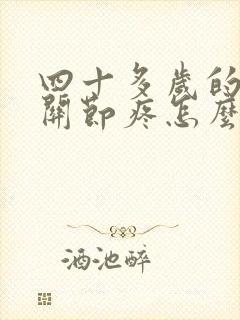 四十多歲的
關節疼怎麼
酒池醉